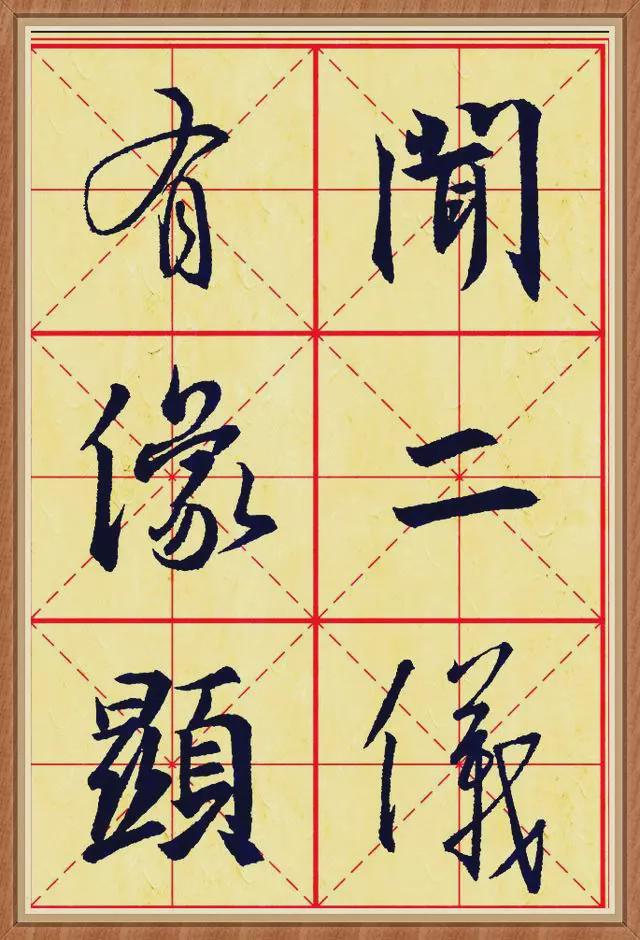 聞二儀
有像顯